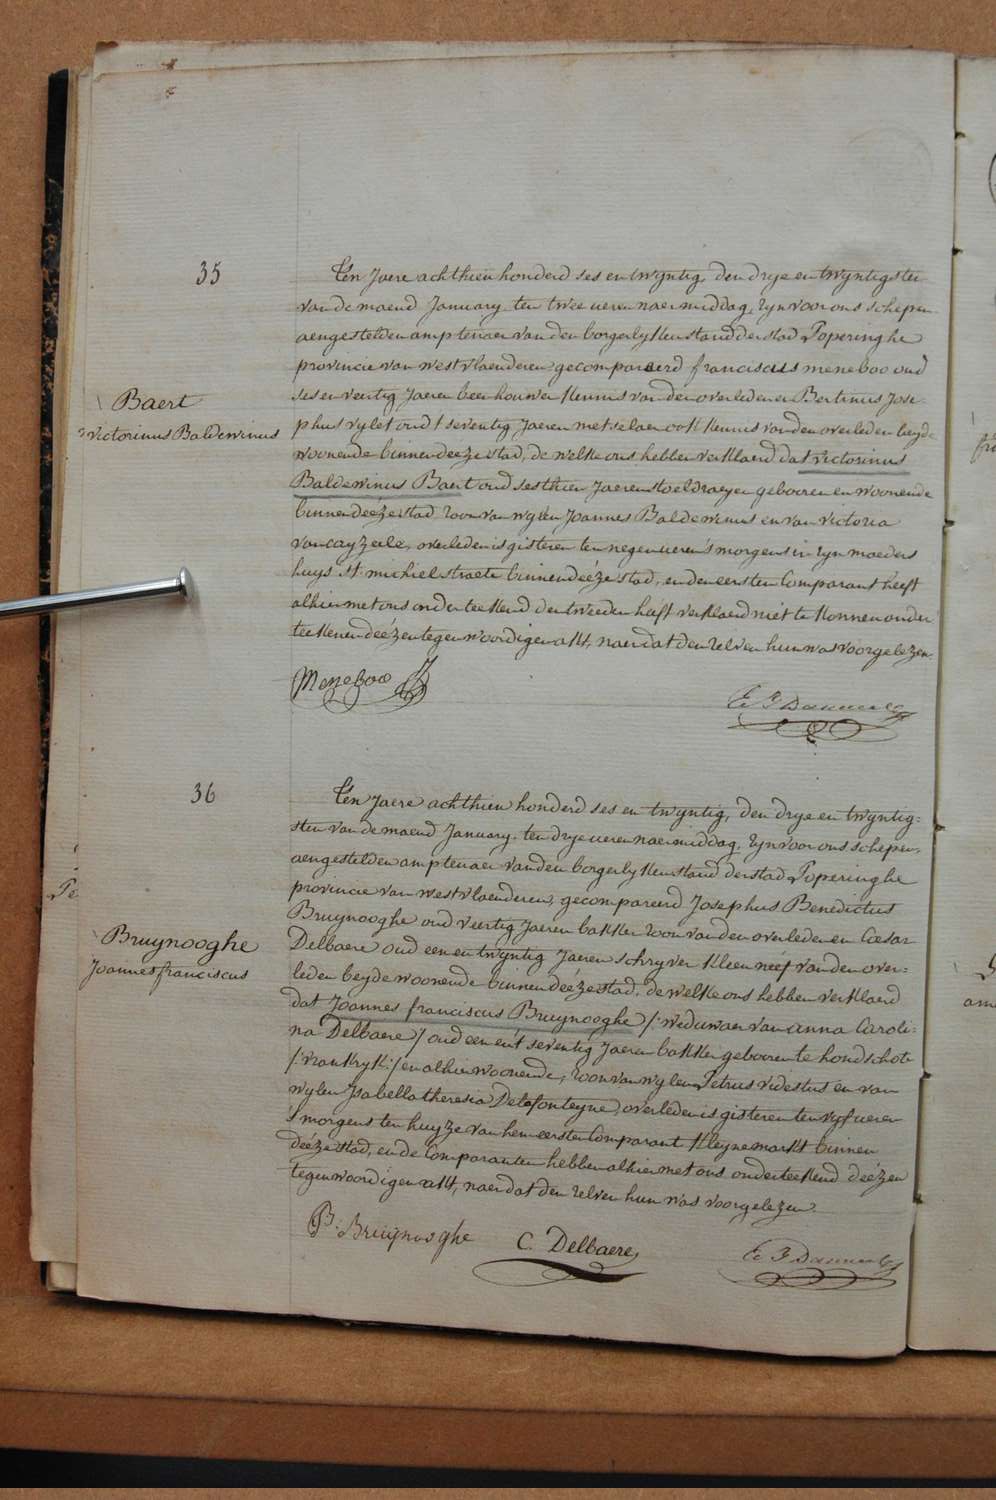 35
Ten Jaere achthien honderd ses en twyntig, den drye en twyntigsten
van de maend January ten twee ueren naermiddag, zyn voor ons schepen
aengestelden amptenaer van den borgerlyken stand der stad Poperinghe
provincie van westvlaenderen gecompareerd franciscus meneboo oud
ses en veertig Jaeren beenhouwer kennis van den overledenen Bertinus Jose-
phus vylet oud t'seventig Jaeren metselaer ook kennis van den overleden beyde
woonende binnen deéze stad, de welke ons hebben verklaerd dat victorinus
Baldewinus Baert oud sesthien Jaeren stoeldraeyer gebooren en woonende
binnen deéze stad zoon van wylen Joannes Baldewinus en van victoria
van cayzeele, overleden is gisteren ten negen ueren s'morgens in zyn moeders
huys st. michiel straete binnen deéze stad, en den eersten Comparant heeft
alhier met ons onderteekend den tweeden heeft verklaerd niet te konnen onder
teekenen deézen tegenwoordigen akt, naer dat den zelven hun was voorgelezen.
Baert
victorinus Baldewinus
Meneboo
36
Ten Jaere achthien honderd ses en twyntig, den drye en twyntig-
sten van de maend January, ten drye ueren naermiddag, zyn voor ons schepen,
aengestelden amptenaer van den borgerlyken stand der stad Poperinghe
provincie van westvlaenderen, gecompareerd Josephus Benedictus
Bruynooghe oud veertig Jaeren bakker zoon van den overledenen Cæsar
Delbaere oud een en twyntig Jaeren schryver kleen neéf van den over-
leden beyde woonende binnen deéze stad, de welke ons hebben verklaerd
dat Joannes franciscus Bruynooghe /: weduwaer van anna Caroli-
na Delbaere / oud een en t'seventig Jaeren bakker gebooren te hondschote
/: vrankryk :/ en alhier woonende, zoon van wylen Petrus vedastus en van
wylen Isabella theresia Delafonteyne, overleden is gisteren ten vyf ueren
s'morgens ten huyze van hem eersten Comparant kleyne markt binnen
deéze stad, en de Comparanten hebben alhier met ons onderteekend deézen
tegenwoordigen akt, naer dat den zelven hun was voorgelezen.
Bruynooghe
Joannes franciscus
B. Bruijnooghe
C. Delbaere